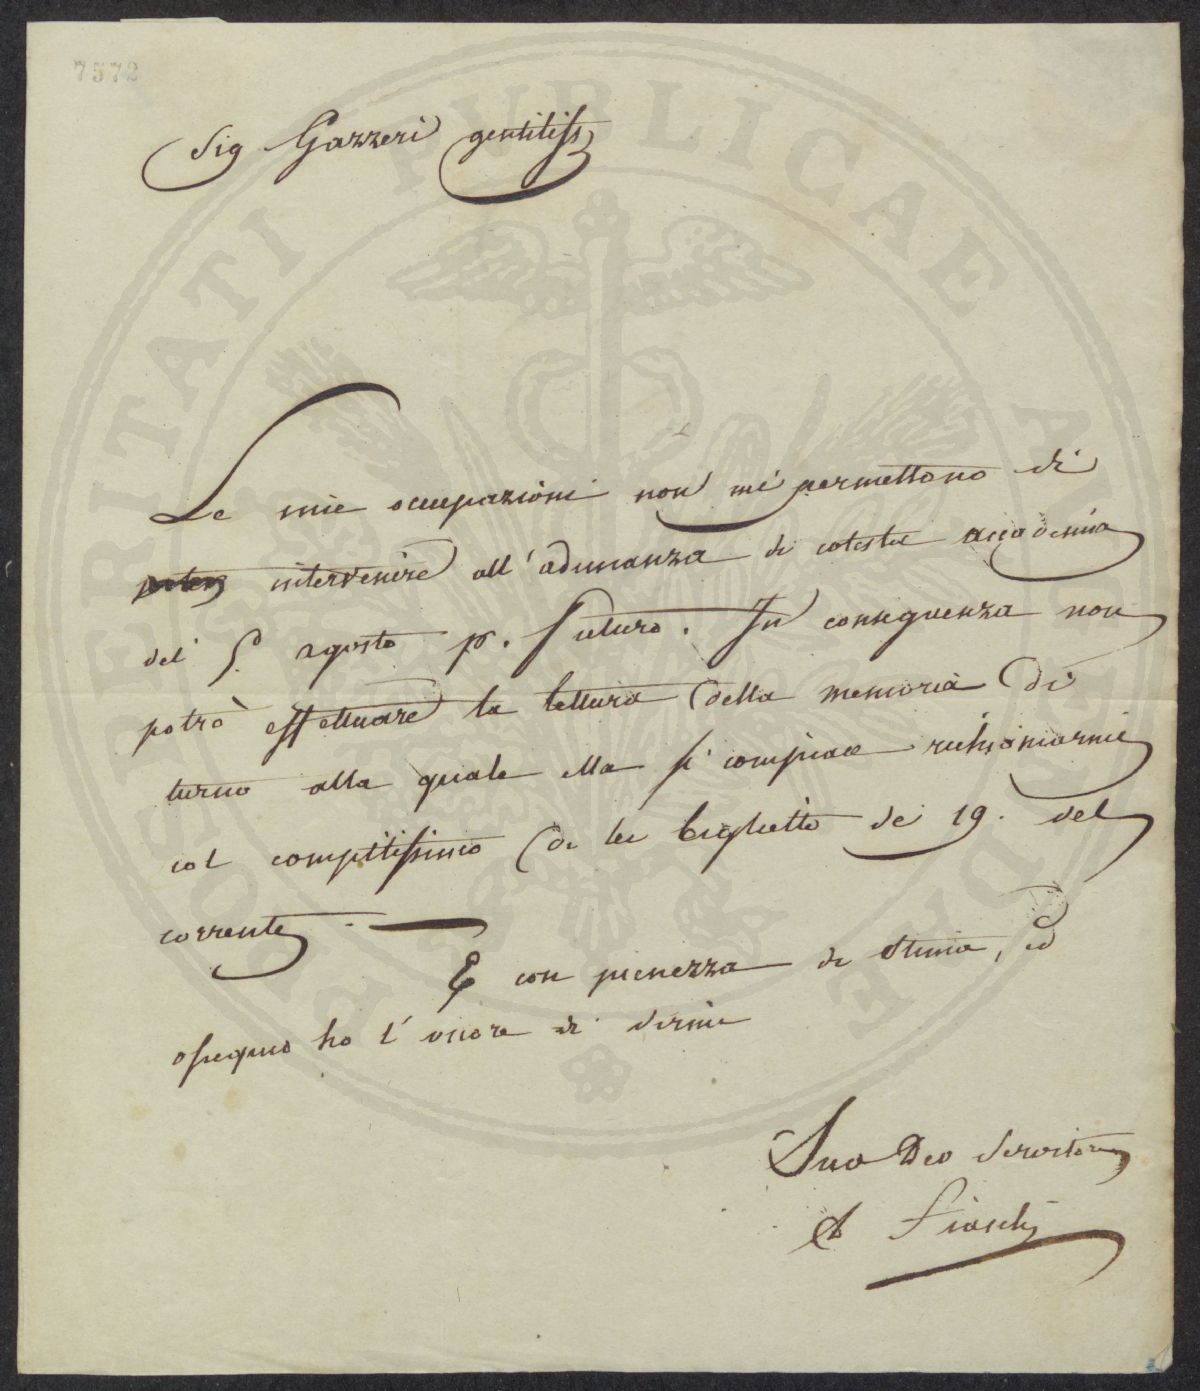 7572
Sig Gazzeri gentiliss
Le mie occupazioni non mi permettono di
intervenire all'adunanza di cotesta accademia
del 5. agosto p. futuro. In conseguenza non
potrò effettuare la lettura della memoria di
turno alla quale ella si compiace richiamarmi
col compitissimo di lei biglietto de 19. del
corrente. —
E con pienezza di stima, ed
ossequio ho l'onore di dirmi
Suo Deo Servitore
Fiaschi
PROSPERITATI PUBLICAE AUGENDAE